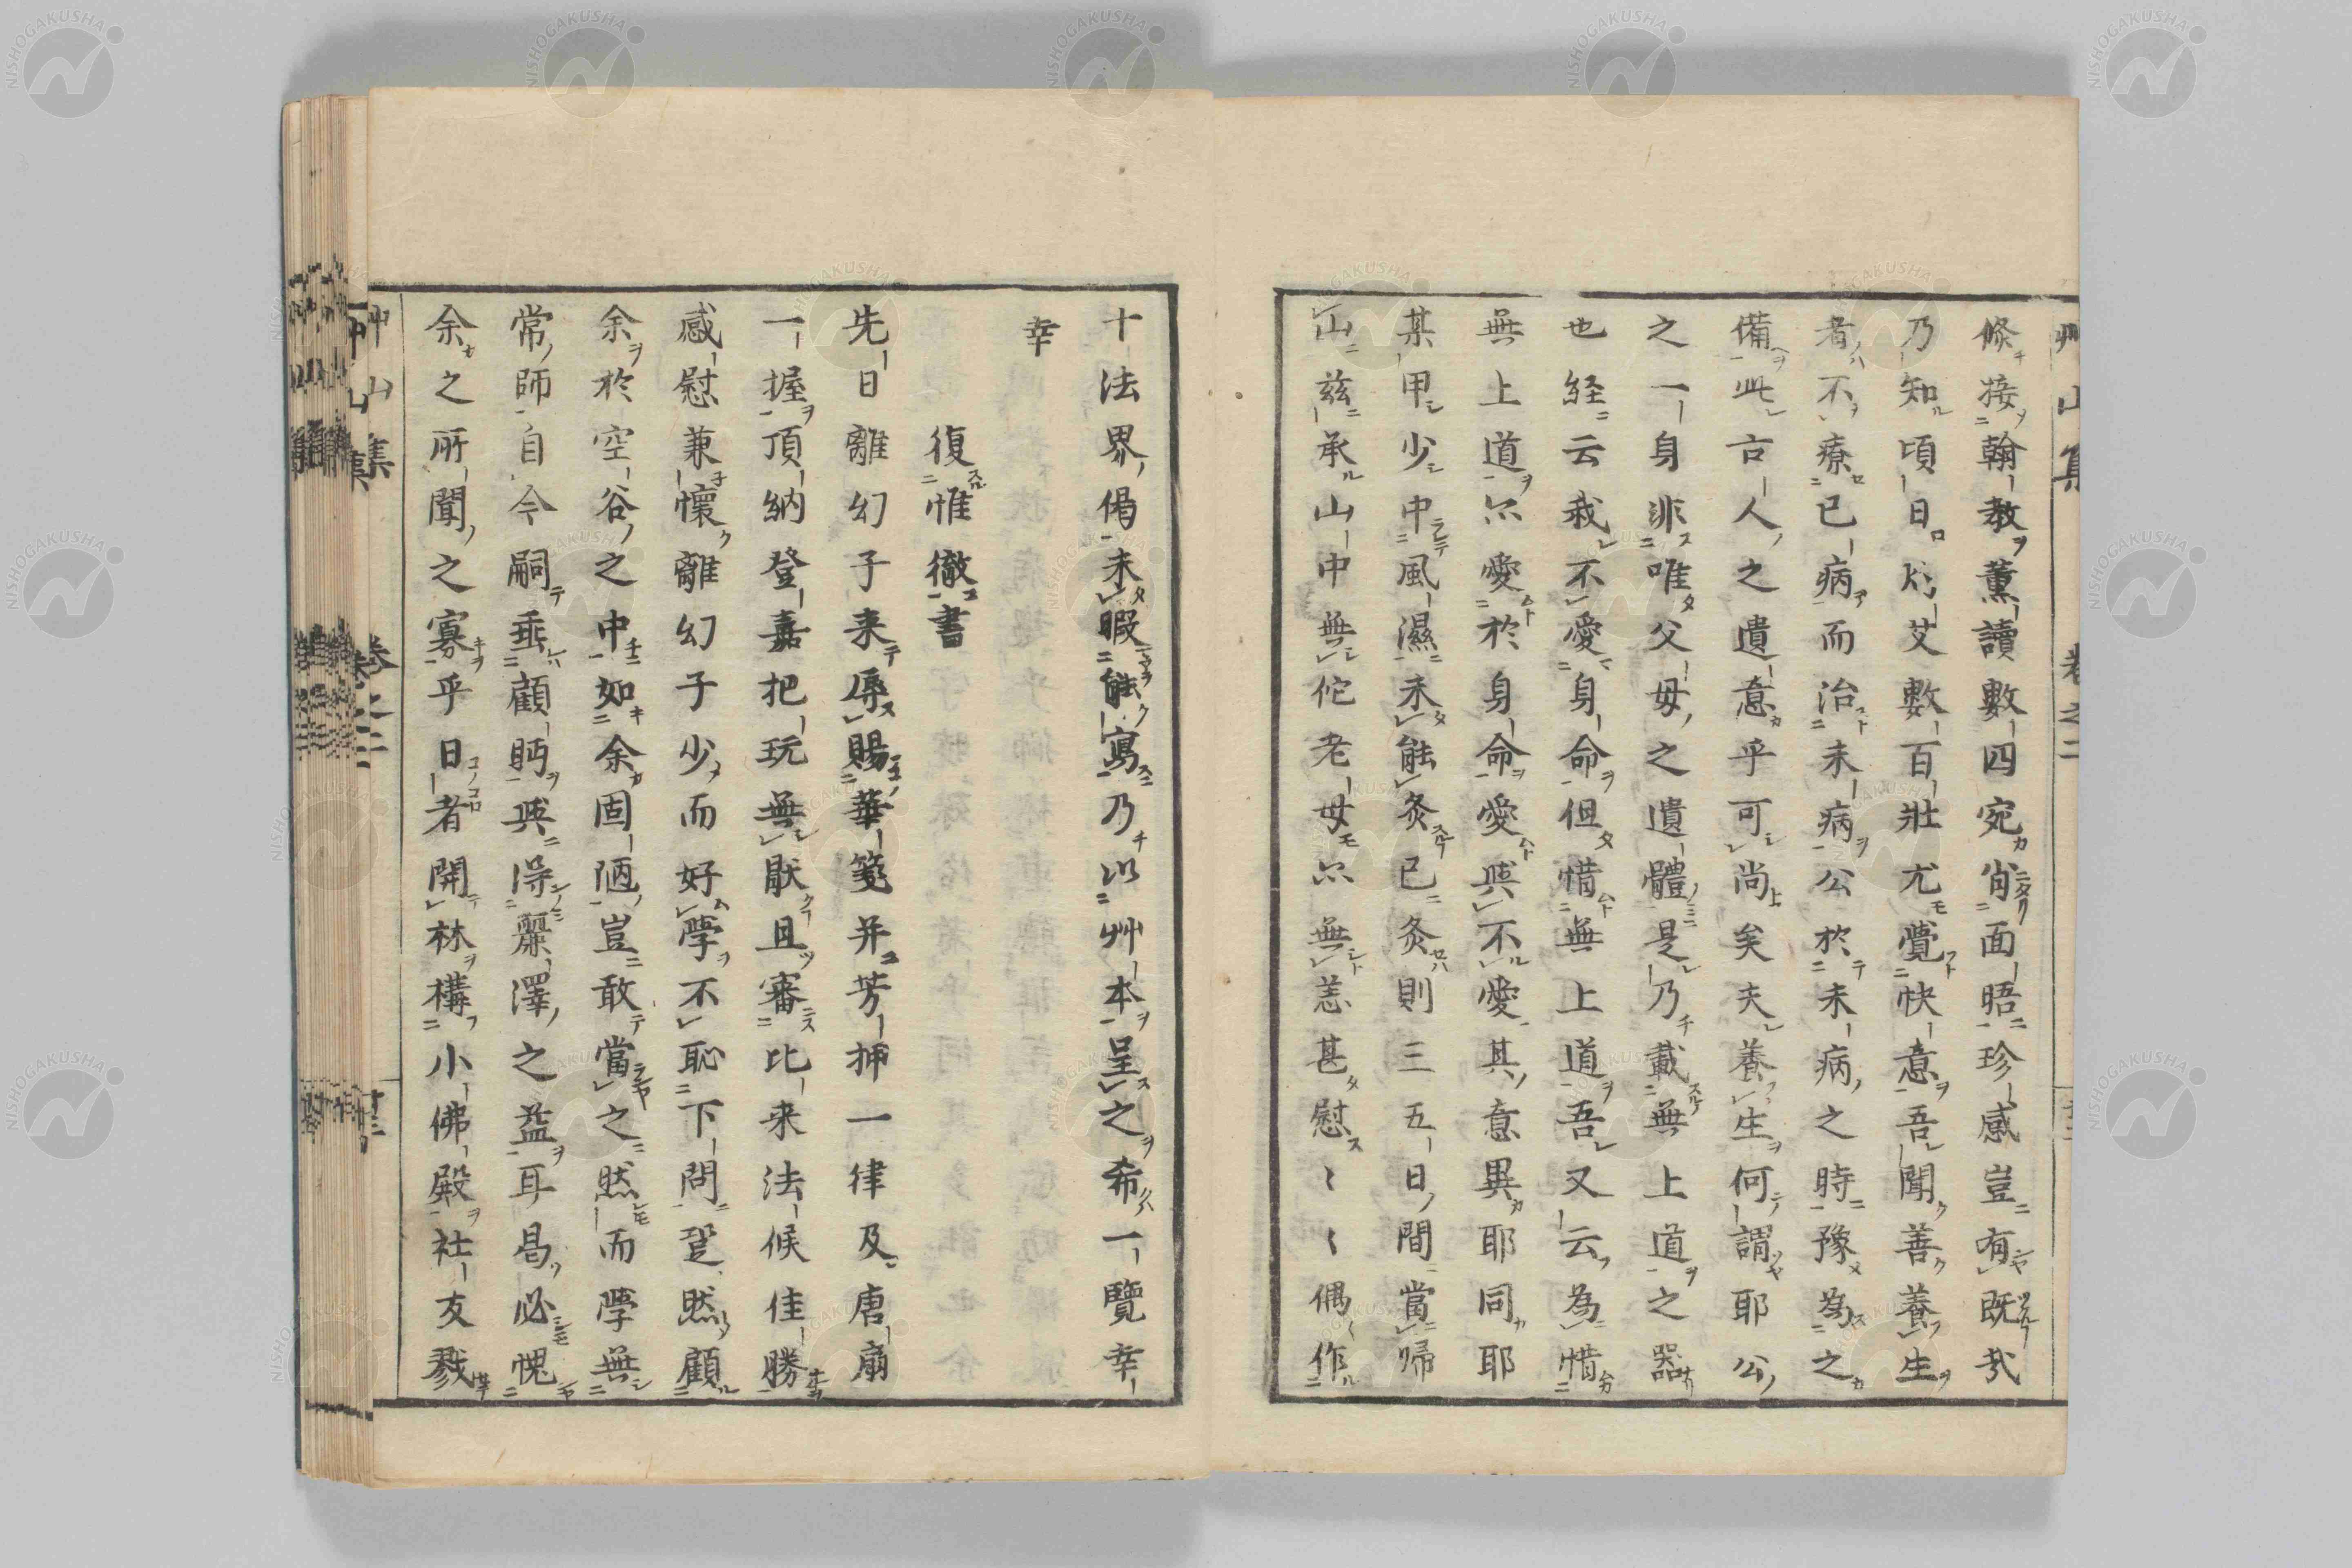 艸山集　卷之二
修接翰教薫讀數四宛肖面晤珍感豈有既哉
乃知頃日灼艾數百壯尤覺快意吾聞善養生
者不療已病而治未病公於未病之時豫為之
備此古人之遺意乎可尚矣夫養生何謂耶公
之一身非唯父母之遺體是乃載無上道之器
也経云我不愛身命但惜無上道吾又云為惜
無上道尓愛於身命愛與不愛其意異耶同耶
某甲少中風濕未能灸已灸則三五日間當帰
山兹承山中無佗老母尓無恙甚慰〻〻偶作
十法界偈未暇能寫乃以艸本呈之希一覽幸
幸
復惟徹書
先日離幻子来辱賜華箋并芳挿一律及唐扇
一握頂納登嘉把玩無猒且審比来法候佳勝
感慰兼懐離幻子少而好學不恥下問跫然顧
余於空谷之中如余固陋豈敢當之然而學無
常師自今嗣垂顧眄與得麗澤之益耳曷必愧
余之所聞之寡乎日者開林構小佛殿社友戮
艸山集　卷之二